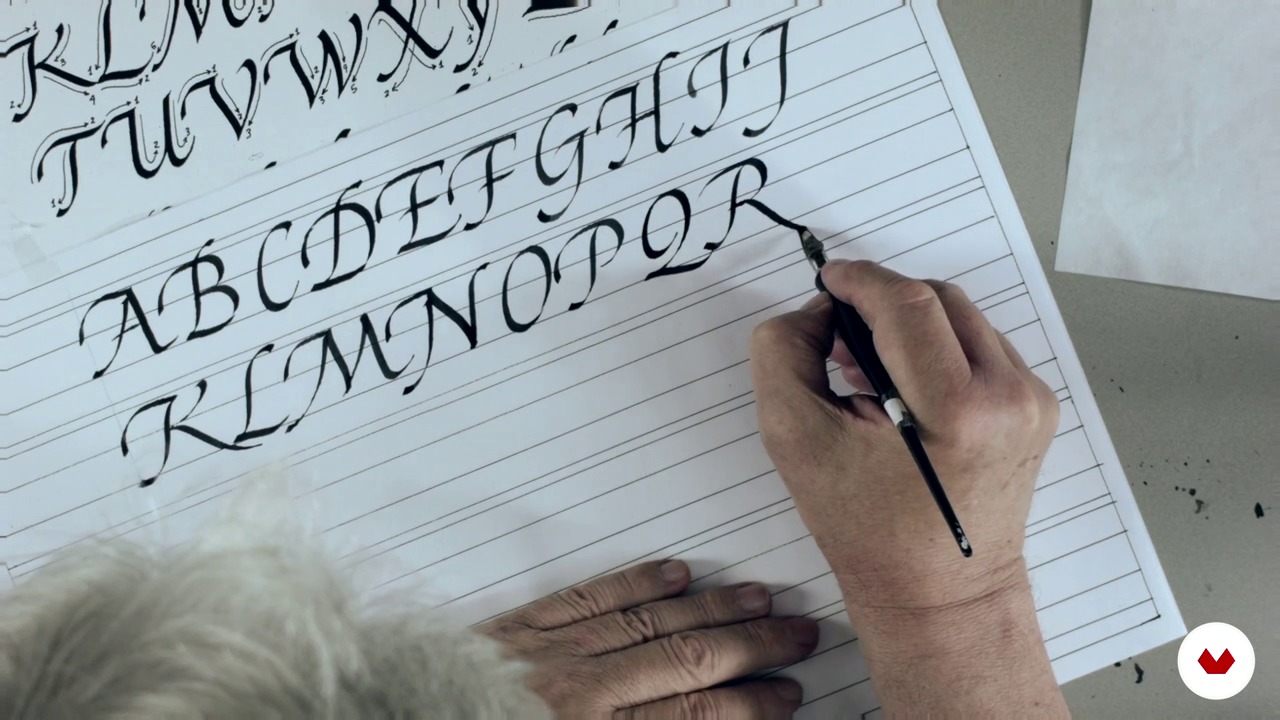 KLM
TUVWXY
ABCDEFGHIJ
KLMNOPQR